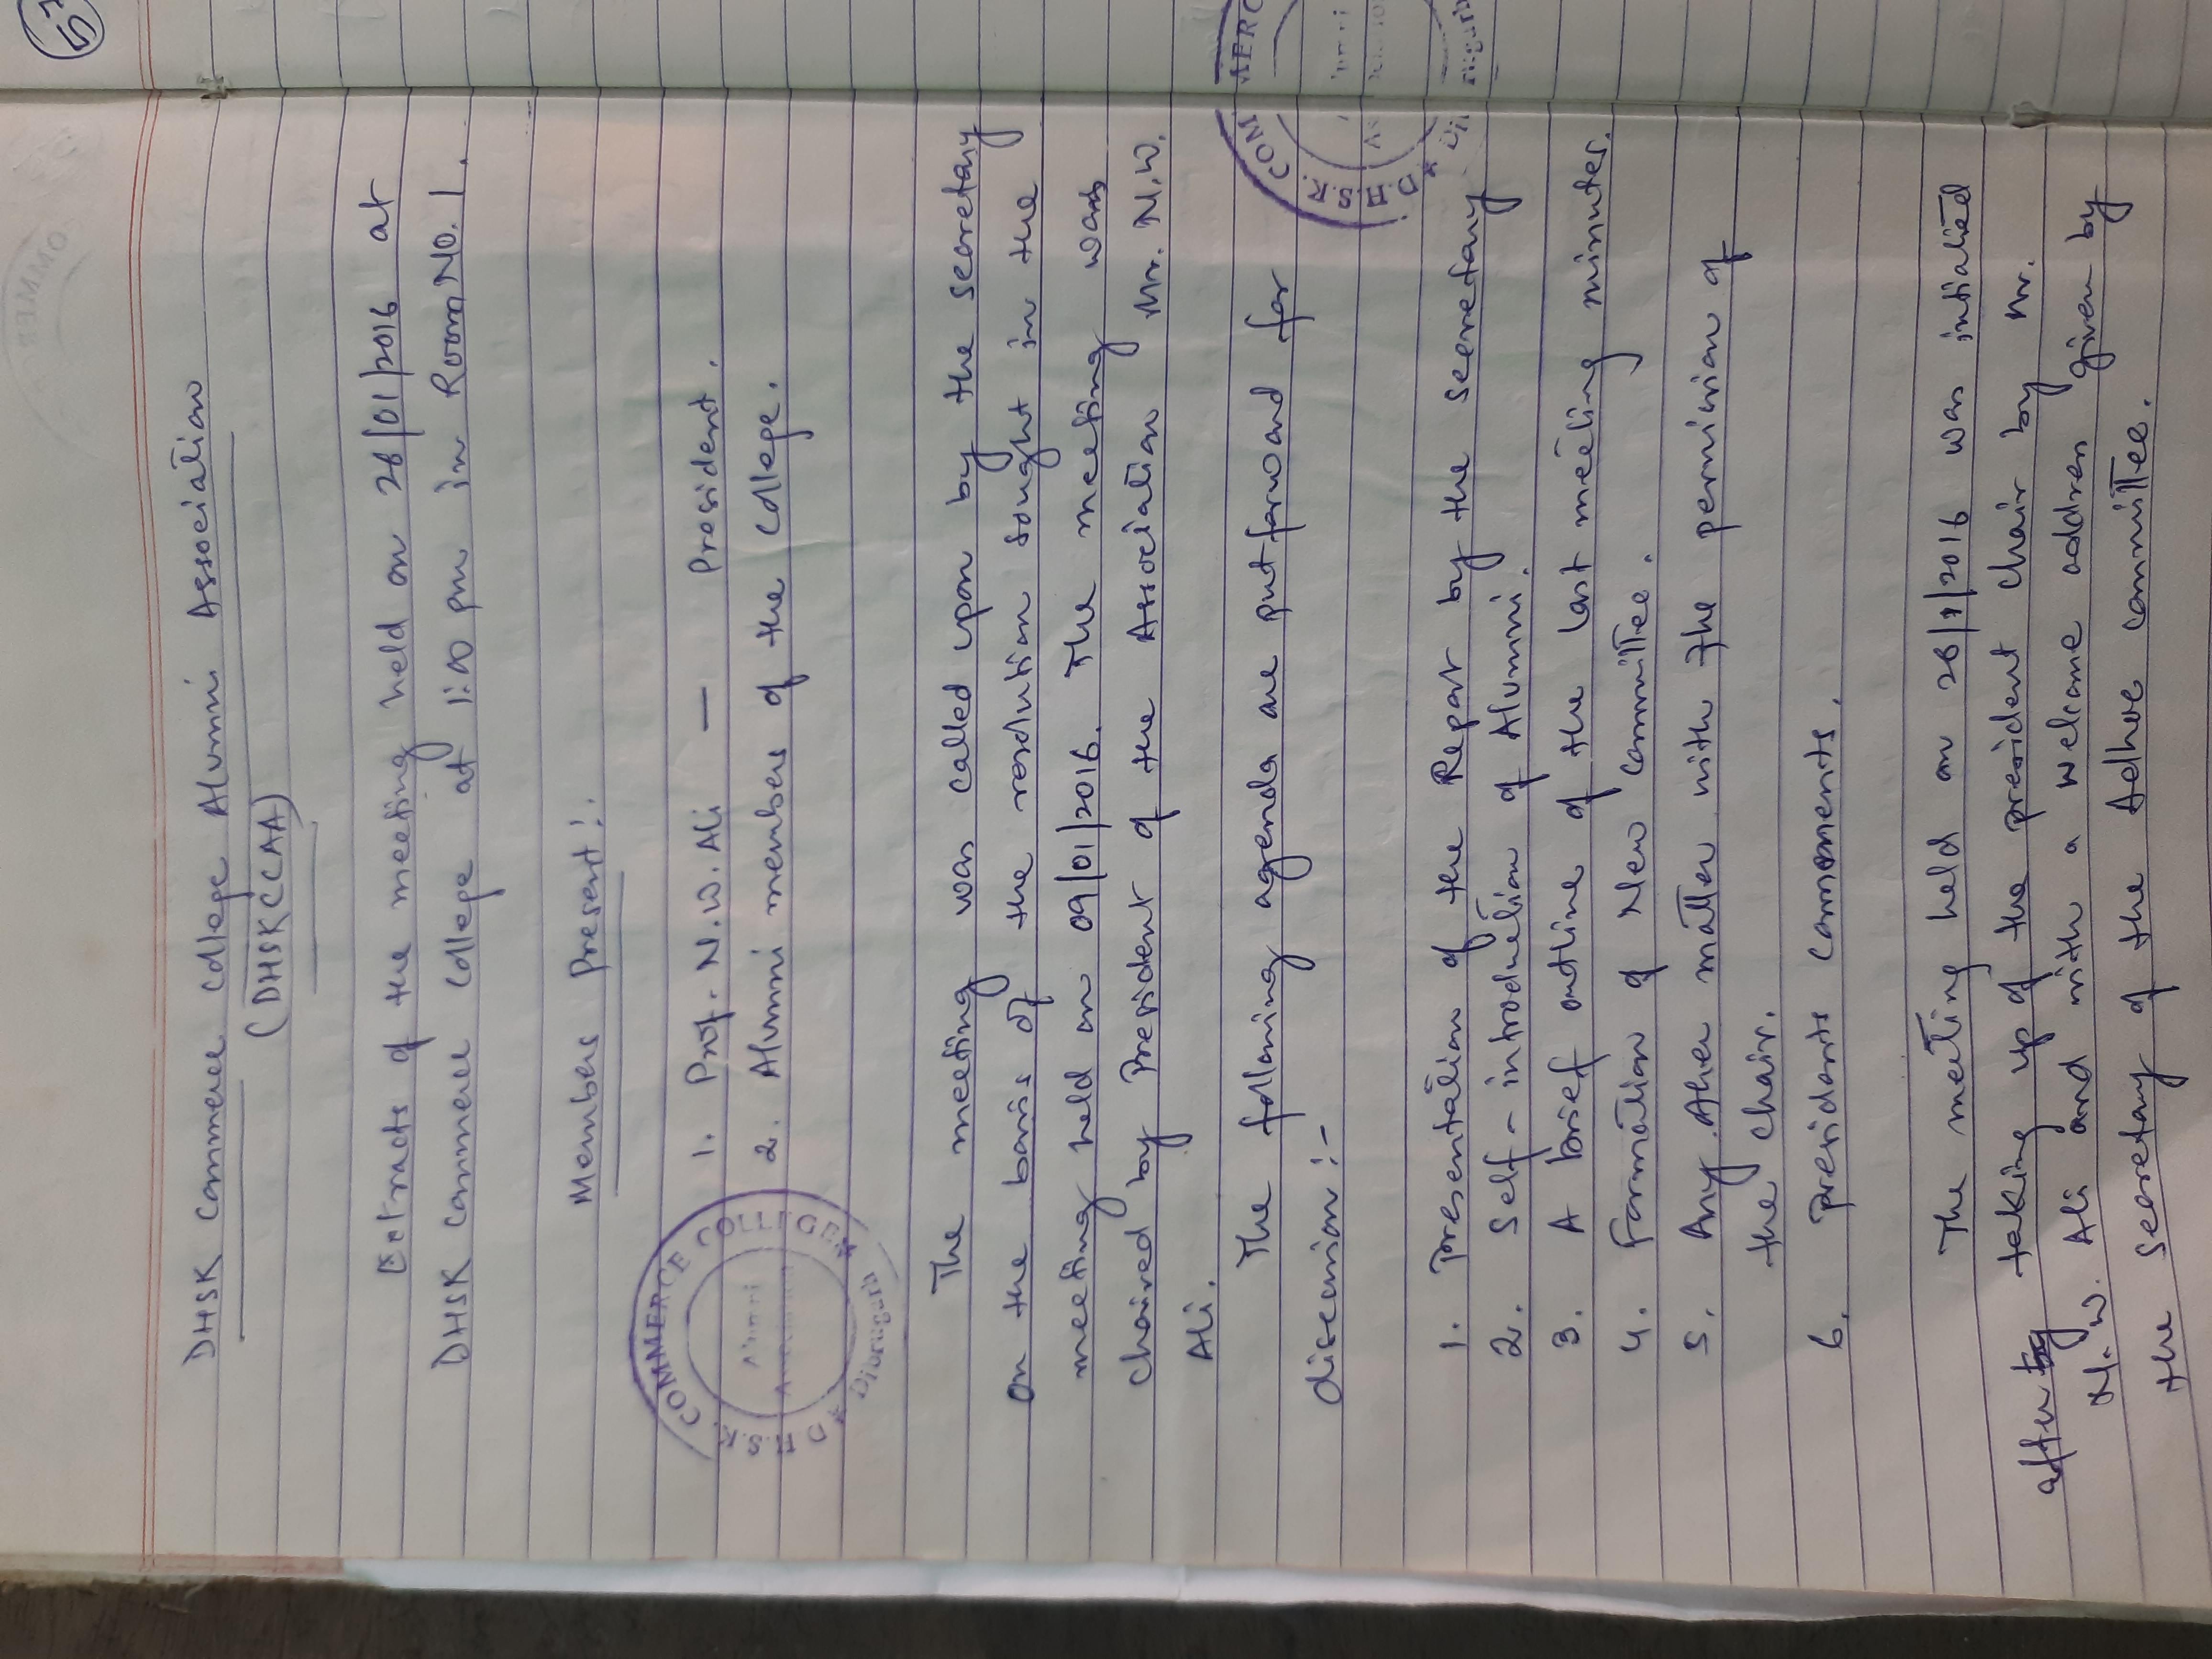 DHSK Commerce College Alumni Association
(DHSKCCAA)
Extracts of the meeting held on 28/01/2016 at
DHSK Commerce College at 1:00 pm in Room No. 1.
Members Present:
1. Prof. N.W. Ali — President.
2. Alumni members of the College.
The meeting was called upon by the secretary
on the basis of the resolution sought in the
meeting held on 09/01/2016. The meeting was
chaired by President of the Association Mr. N.W.
Ali.
The following agenda are put forward for
discussion :-
1. Presentation of the Report by the secretary
2. Self-introduction of Alumni.
3. A brief outline of the last meeting minutes.
4. Formation of New Committee.
5. Any other matter with the permission of
the chair.
6. Presidents comments.
The meeting held on 28/1/2016 was intialied
after taking up of the president chair by Mr.
N.W. Ali and with a welcome address given by
the Secretary of the Adhoc committee.
S.R. COMMERCE COLLEGE
Alumni
Association
D H
Dibrugarh
S.R. COM MERC
D H